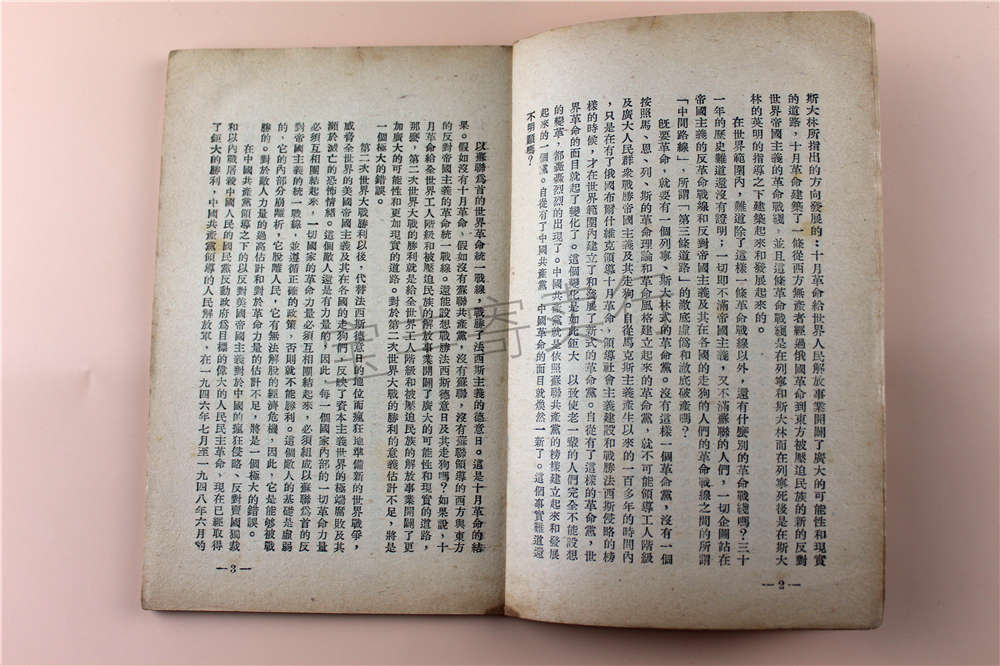 斯大林所指出的方向發展的：十月革命給世界人民解放事業開闢了廣大的可能性和現實
的道路，十月革命建築了一條從西方無產者經過俄國革命到東方被壓迫民族的新的反對
世界帝國主義的革命戰綫，並且這條革命戰綫是在列寧和斯大林而在列寧死後是在斯大
林的英明的指導之下建築起來和發展起來的。
在世界範圍內，難道除了這樣一條革命戰線以外，還有什麼別的革命戰綫嗎？三十
一年的歷史難道還沒有證明：一切即不滿帝國主義，又不滿蘇聯的人們，一切企圖站在
帝國主義的反革命戰線和反對帝國主義及其在各國的走狗的人們的革命戰線之間的所謂
「中間路線」，所謂「第三條道路」的澈底虛僞和澈底破產嗎？
既要革命，就要有一個列寧、斯大林式的革命黨。沒有這樣一個革命黨，沒有一個
按照馬、恩、列、斯的革命理論和革命風格建立起來的革命黨，就不可能領導工人階級
及廣大人民群衆戰勝帝國主義及其走狗。自從馬克斯主義產生以來的一百多年的時間內
，只是在有了俄國布爾什維克領導十月革命、領導社會主義建設和戰勝法西斯侵略的榜
樣的時候，才在世界範圍內建立了和發展了新式的革命黨。自從有了這樣的革命黨，世
界革命的面目就起了變化了。這個變化是如此鉅大　以致使老一輩的人們完全不能設想
的變革，都轟轟烈烈的出現了。中國共產黨就是依照蘇聯共產黨的榜樣建立起來和發展
起來的一個黨。自從有了中國共產黨　中國革命的面目就煥然一新了。這個事實難道還
不明顯嗎？
—2—
以蘇聯為首的世界革命統一戰線，戰勝了法西斯主義的德意日。這是十月革命的結
果。假如沒有十月革命，假如沒有蘇聯共產黨，沒有蘇聯，沒有蘇聯領導的西方與東方
的反對帝國主義的革命統一戰線。還能設想戰勝法西斯德意日及其走狗嗎？如果說，十
月革命給全世界工人階級和被壓迫民族的解放事業開闢了廣大的可能性和現實的道路，
那麼，第二次世界大戰的勝利就是給全世界工人階級和被壓迫民族的解放事業開闢了更
加廣大的可能性和更加現實的道路。對於第二次世界大戰的勝利的意義估計不足，將是
一個極大的錯誤。
第二次世界大戰勝利以後，代替法西斯德意日的地位而瘋狂地準備新的世界戰爭，
威脅全世界的美國帝國主義及其在各國的走狗們，反映了資本主義世界的極端腐敗及其
瀕於滅亡的恐怖情緒。這個敵人還是有力量的，因此，每一個國家內部的一切革命力量
必須互相團結起來，一切國家的革命力量必須互相團結起來，必須組成以蘇聯爲首的反
對帝國主義的統一戰線，並遵循正確的政策，否則就不能勝利。這個敵人的基礎是虛弱
的，它的內部分崩離析，它脫離人民，它有無法解脫的經濟危機，因此，它是能够被戰
勝的。對於敵人力量的過高估計和對於革命力量的估計不足，將是一個極大的錯誤。
在中國共產黨領導之下的以反對美國帝國主義對於中國的瘋狂侵略、反對賣國獨裁
和以內戰屠殺中國人民的國民黨反動政府爲目標的偉大的人民民主革命，現在已經取得
了鉅大的勝利，中國共產黨領導的人民解放軍，在一九四六年七月至一九四八年六月的
—3—